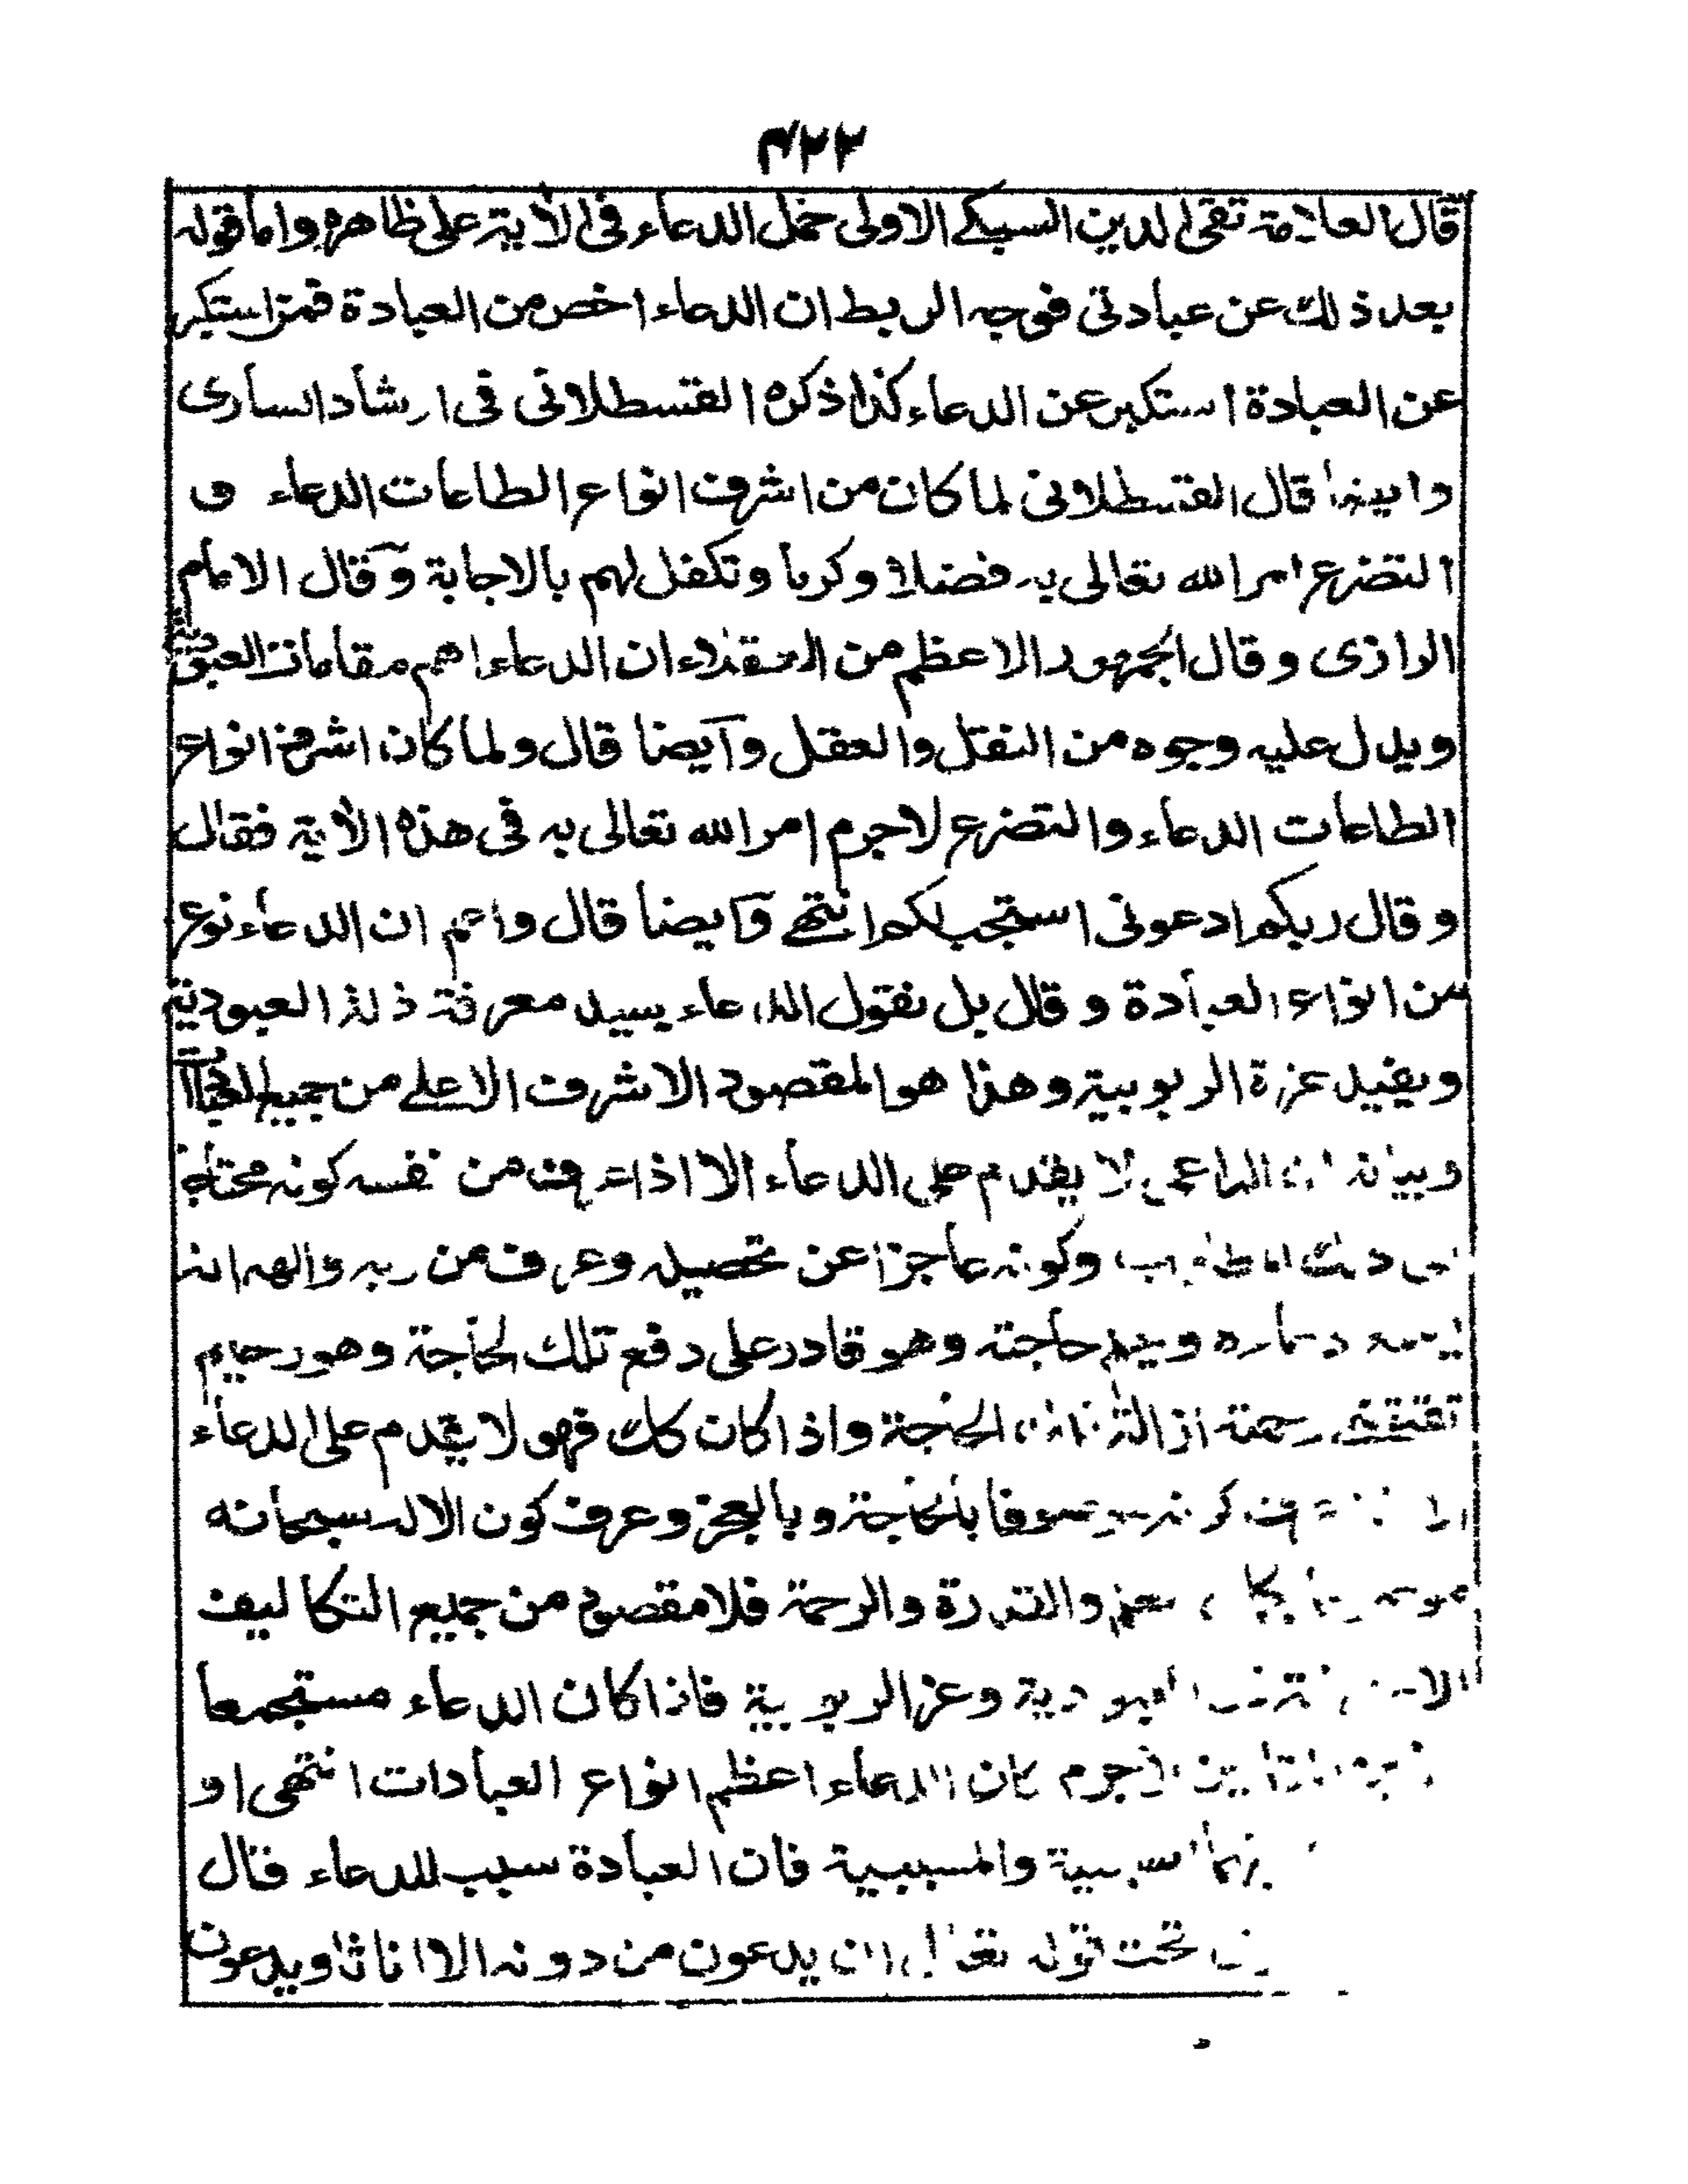 ۴۲۲
قال العلامة تقي الدين السبكے الاولى حمل الدعاء فى الأية على ظاهره واما قوله
بعد ذلك عن عبادتى فوجه الربط ان الدعاء اخص من العبادة فمن استكبر
عن العبادة استكبر عن الدعاء كذا ذكره القسطلانى فى ارشاد السارى
وايضا قال القسطلانى لما كان من اشرف انواع الطاعات الدعاء و
التضرع امر الله تعالى به فضلا وكرما وتكفل لهم بالاجابة وقال الامام
الرازى وقال الجمهور الاعظم من العقلاء ان الدعاء اهم مقامات العبودية
ويدل عليه وجوه من النقل والعقل وايضا قال ولما كان اشرف انواع
الطاعات الدعاء والتضرع لاجرم امر الله تعالى به فى هذه الأية فقال
وقال ربكم ادعونى استجب لكم انتهے وايضا قال واعلم ان الدعاء نوع
من انواع العبادة وقال بل نقول الدعاء يفيد معرفة ذلة العبودية
ويفيد عزة الربوبية وهذا هو المقصود الاشرف الاعلے من جميع العبادات
وبيانه ان الداعى لا يقدم على الدعاء الا اذا عرف من نفسه كونه محتاجا
الى ذلك المطلوب وكونه عاجزا عن تحصيله وعرف من ربه والهه انه
يسمع دعاءه ويعلم حاجته وهو قادر على دفع تلك الحاجة وهو رحيم
تقتضے رحمته ازالة تلك الحاجة واذا كان كك فهو لا يقدم على الدعاء
الا اذا عرف كونه موصوفا بالحاجة وبالعجز وعرف كون الاله سبحانه
موصوفا بكمال العلم والقدرة والرحمة فلا مقصود من جميع التكاليف
الا معرفة ذل العبودية وعز الربوبية فاذا كان الدعاء مستجمعا
لاجرم كان الدعاء اعظم انواع العبادات انتهى او
السببية والمسببية فان العبادة سبب للدعاء قال
تحت قوله تعالى ان يدعون من دونه الا اناثا ويدعون